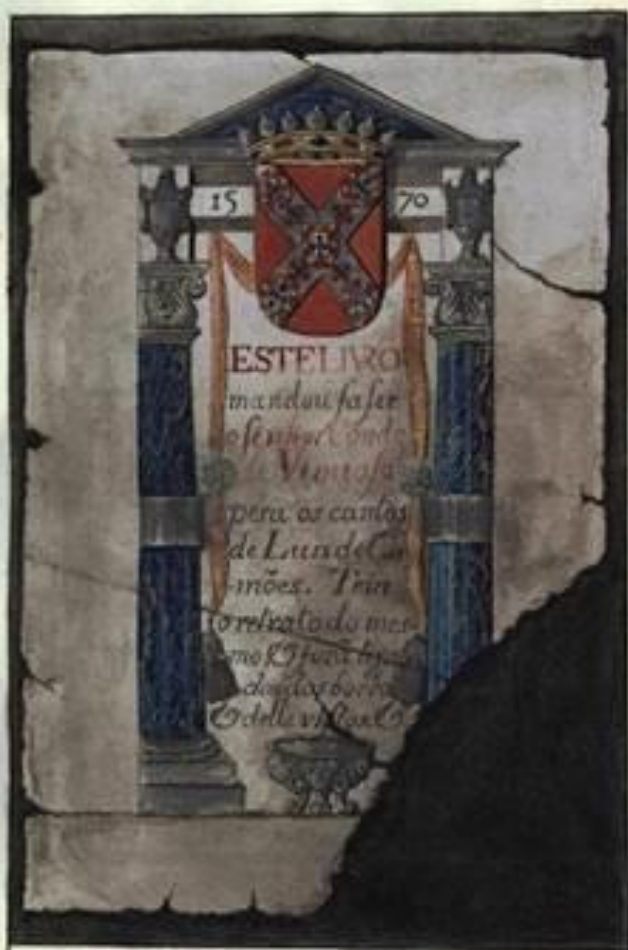 15 70
ESTE LIVRO
mandou faser
o senhor Conde
de
pera os cantos
de Luis de Ca-
-mões. Tem
o retrato do mes-
mo &
della